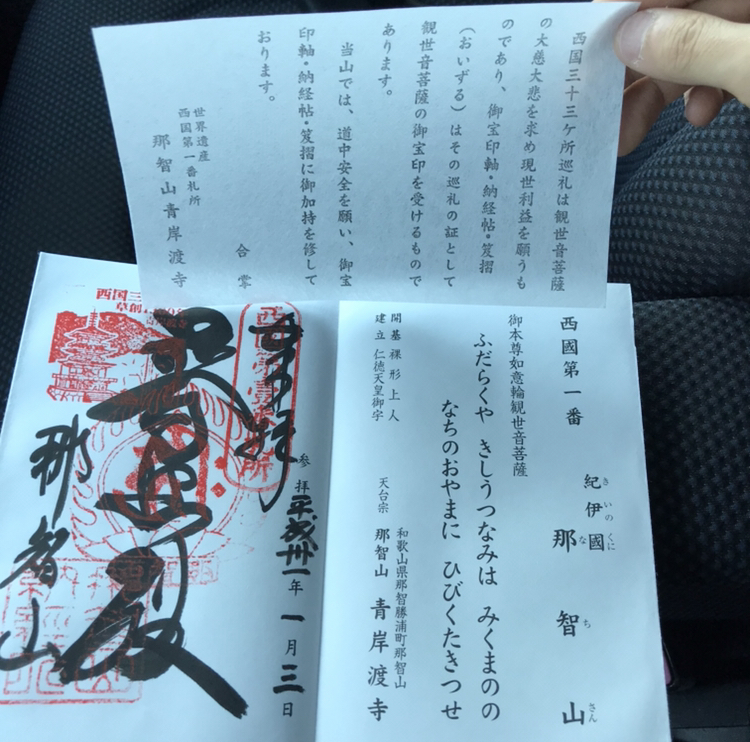 西国三十三ケ所巡礼は観世音菩薩
の大慈大悲を求め現世利益を願うも
のであり、御宝印軸・納経帖・笈摺
（おいずる）はその巡礼の証として
観世音菩薩の御宝印を受けるもので
あります。
当山では、道中安全を願い、御宝
印軸・納経帖・笈摺に御加持を修して
おります。
合掌
世界遺産
西国第一番札所
那智山青岸渡寺
西國第一番 紀伊國 那智山
きいのくに なちさん
御本尊如意輪観世音菩薩
ふだらくや きしうつなみは みくまのの
なちのおやまに ひびくたきつせ
開基 裸形上人
建立 仁徳天皇御宇
和歌山県那智勝浦町那智山
天台宗 那智山 青岸渡寺
参拝 平成卅一年一月三日
奉拝
那智山
西国三
草創